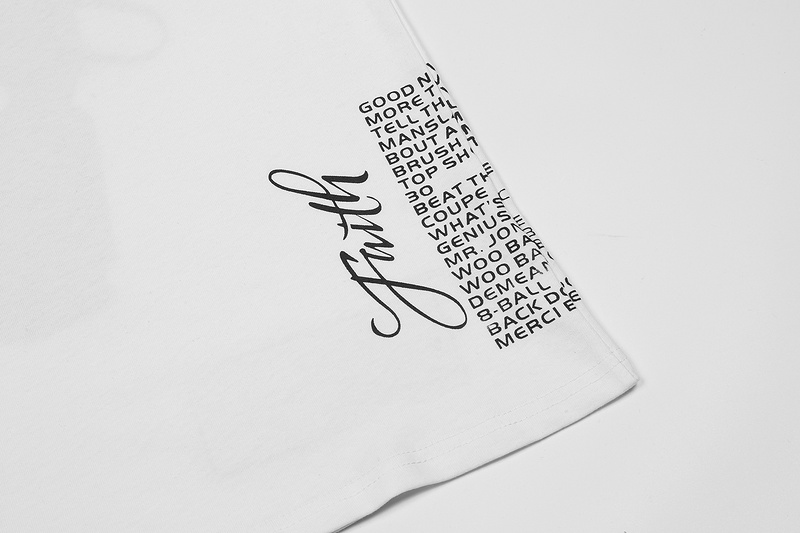 Faith
GOOD N
MORE T
TELL TH
MANSLA
BOUT A
BRUSH
TOP SH
30
BEAT THE
COUPE
WHAT'S
GENIUS
MR. JONE
WOO BA
WOO BA
DEMEAN
8-BALL
BACK DO
MERCI